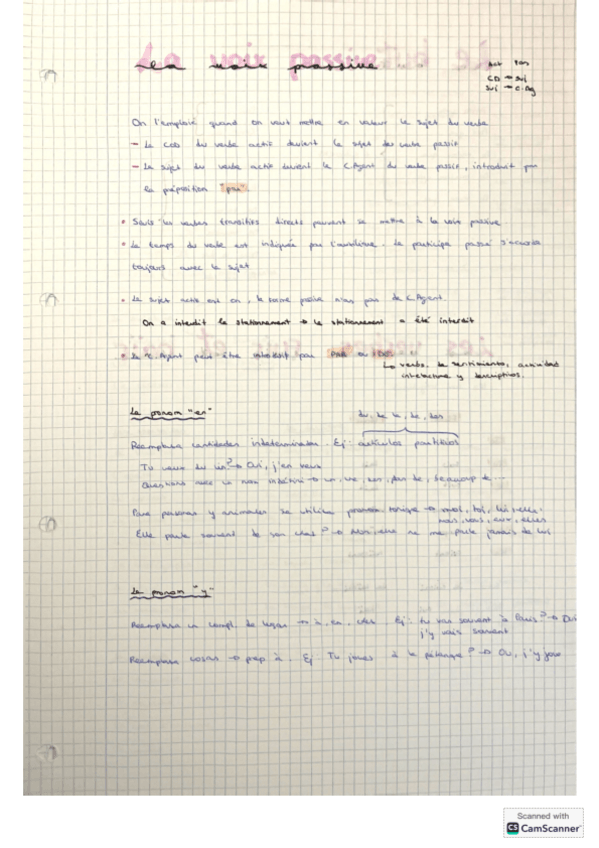 La voix passive
Act Pas
CD → Suj
Suj → C.Ag
On l'emploie quand on veut mettre en valeur le sujet du verbe
- Le COD du verbe actif devient le sujet du verbe passif
- Le sujet du verbe actif devient le C.Agent du verbe passif, introduit par
la préposition "par".
• Seuls les verbes transitifs directs peuvent se mettre à la voix passive.
• Le temps du verbe est indiquée par l'auxiliaire. Le participe passé s'accorde
toujours avec le sujet
• Le sujet actif est on, la forme passive n'as pas de C.Agent.
On a interdit le stationnement → le stationnement a été interdit
• Le C.Agent peut être introduit par PAR ou DE
↳ verbs. de sentimiento, actividad
intelectual y descriptivos.
Le pronom "en"
du, de la, de, des
Reemplaza cantidades indeterminadas. Ej: artículos partitivos
Tu veux du vin? → Oui, j'en veux
Questions avec → un, une, des, pas de, beaucoup de...
Para personas y animales se utiliza pronom tonique → moi, toi, lui, elle,
nous, vous, eux, elles
Elle parle souvent de son ? → Non, elle ne me parle jamais de lui
Le pronom "y"
Reemplaza un compl. de lugar → à, en, chez Ej: tu vas souvent à Paris? → Oui
j'y vais souvent
Reemplaza cosas → prep à. Ej: Tu joues à la pétanque? → Oui, j'y joue
Scanned with
CS CamScanner